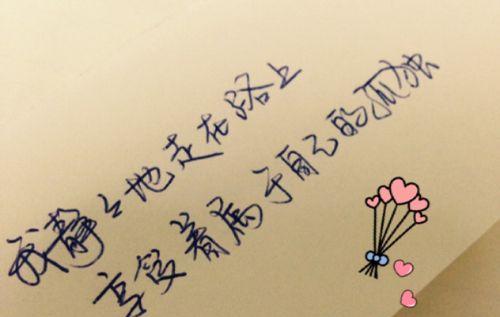 我静々地走在路上
享受着属于自己的孤独